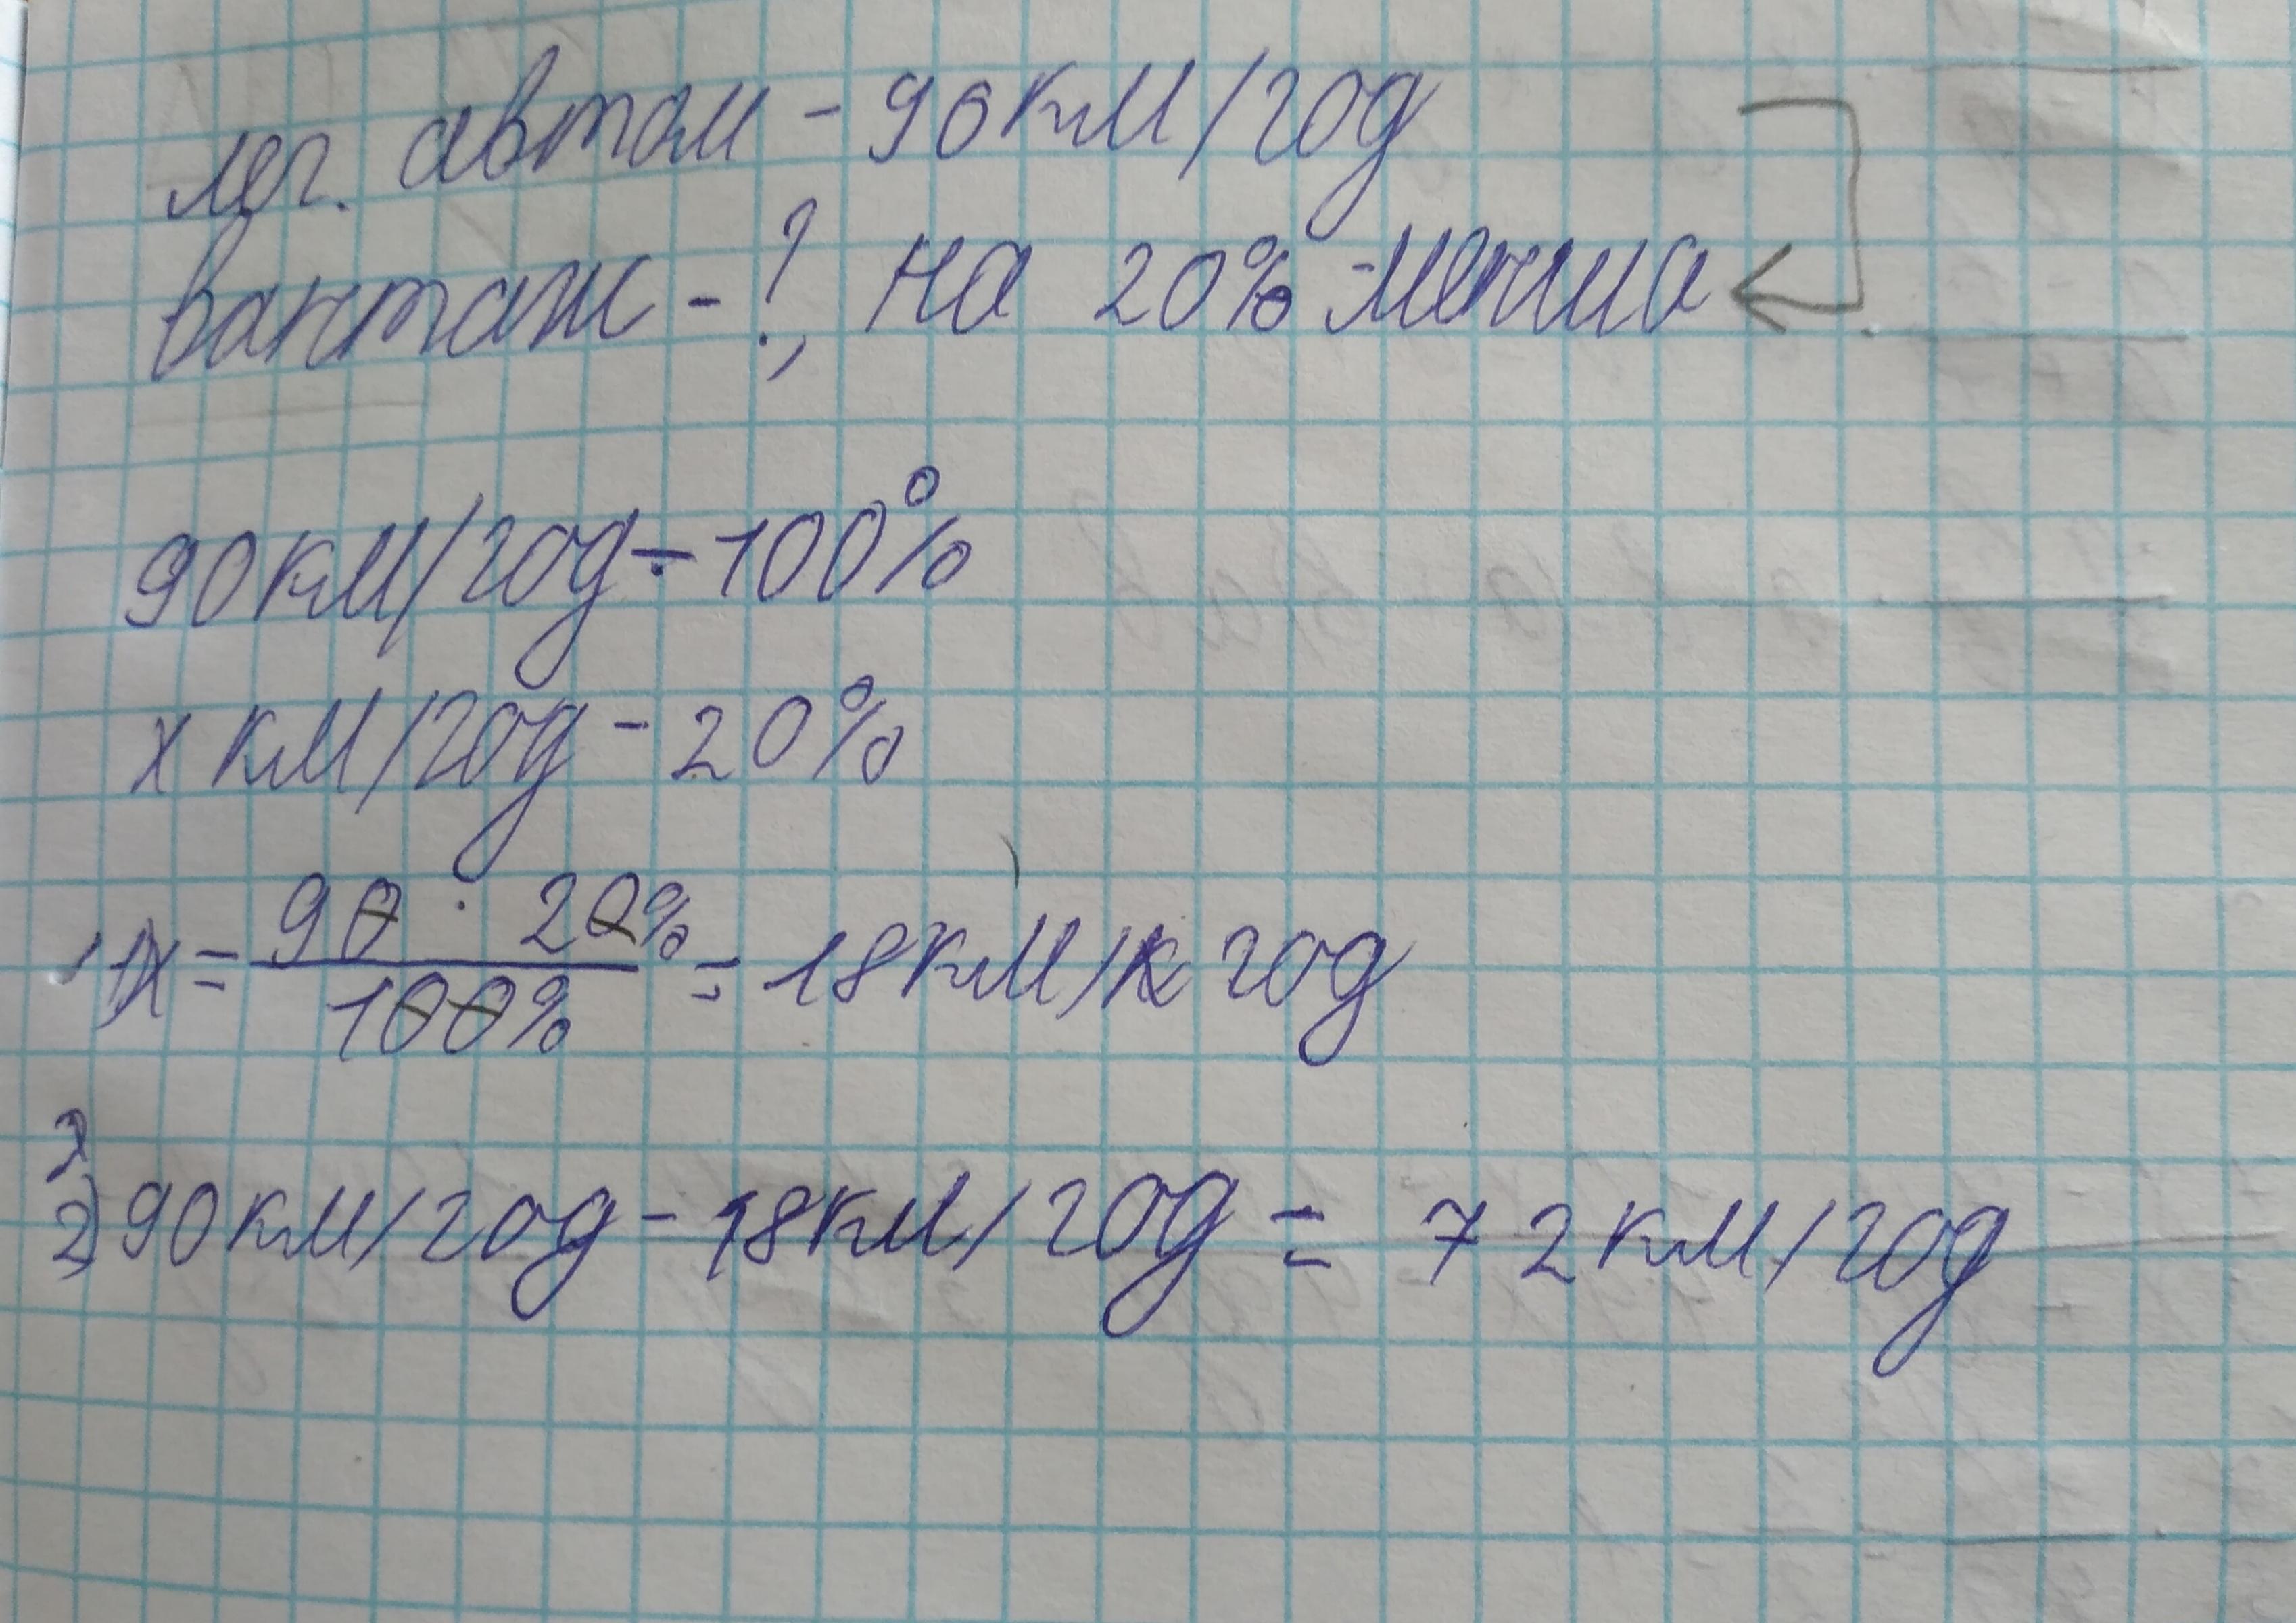 лег. автом - 90км/год
вантаж - ?, на 20% менша
90км/год - 100%
х км/год - 20%
1) х = 90 · 20% / 100% = 18км/год
2) 90км/год - 18км/год = 72км/год